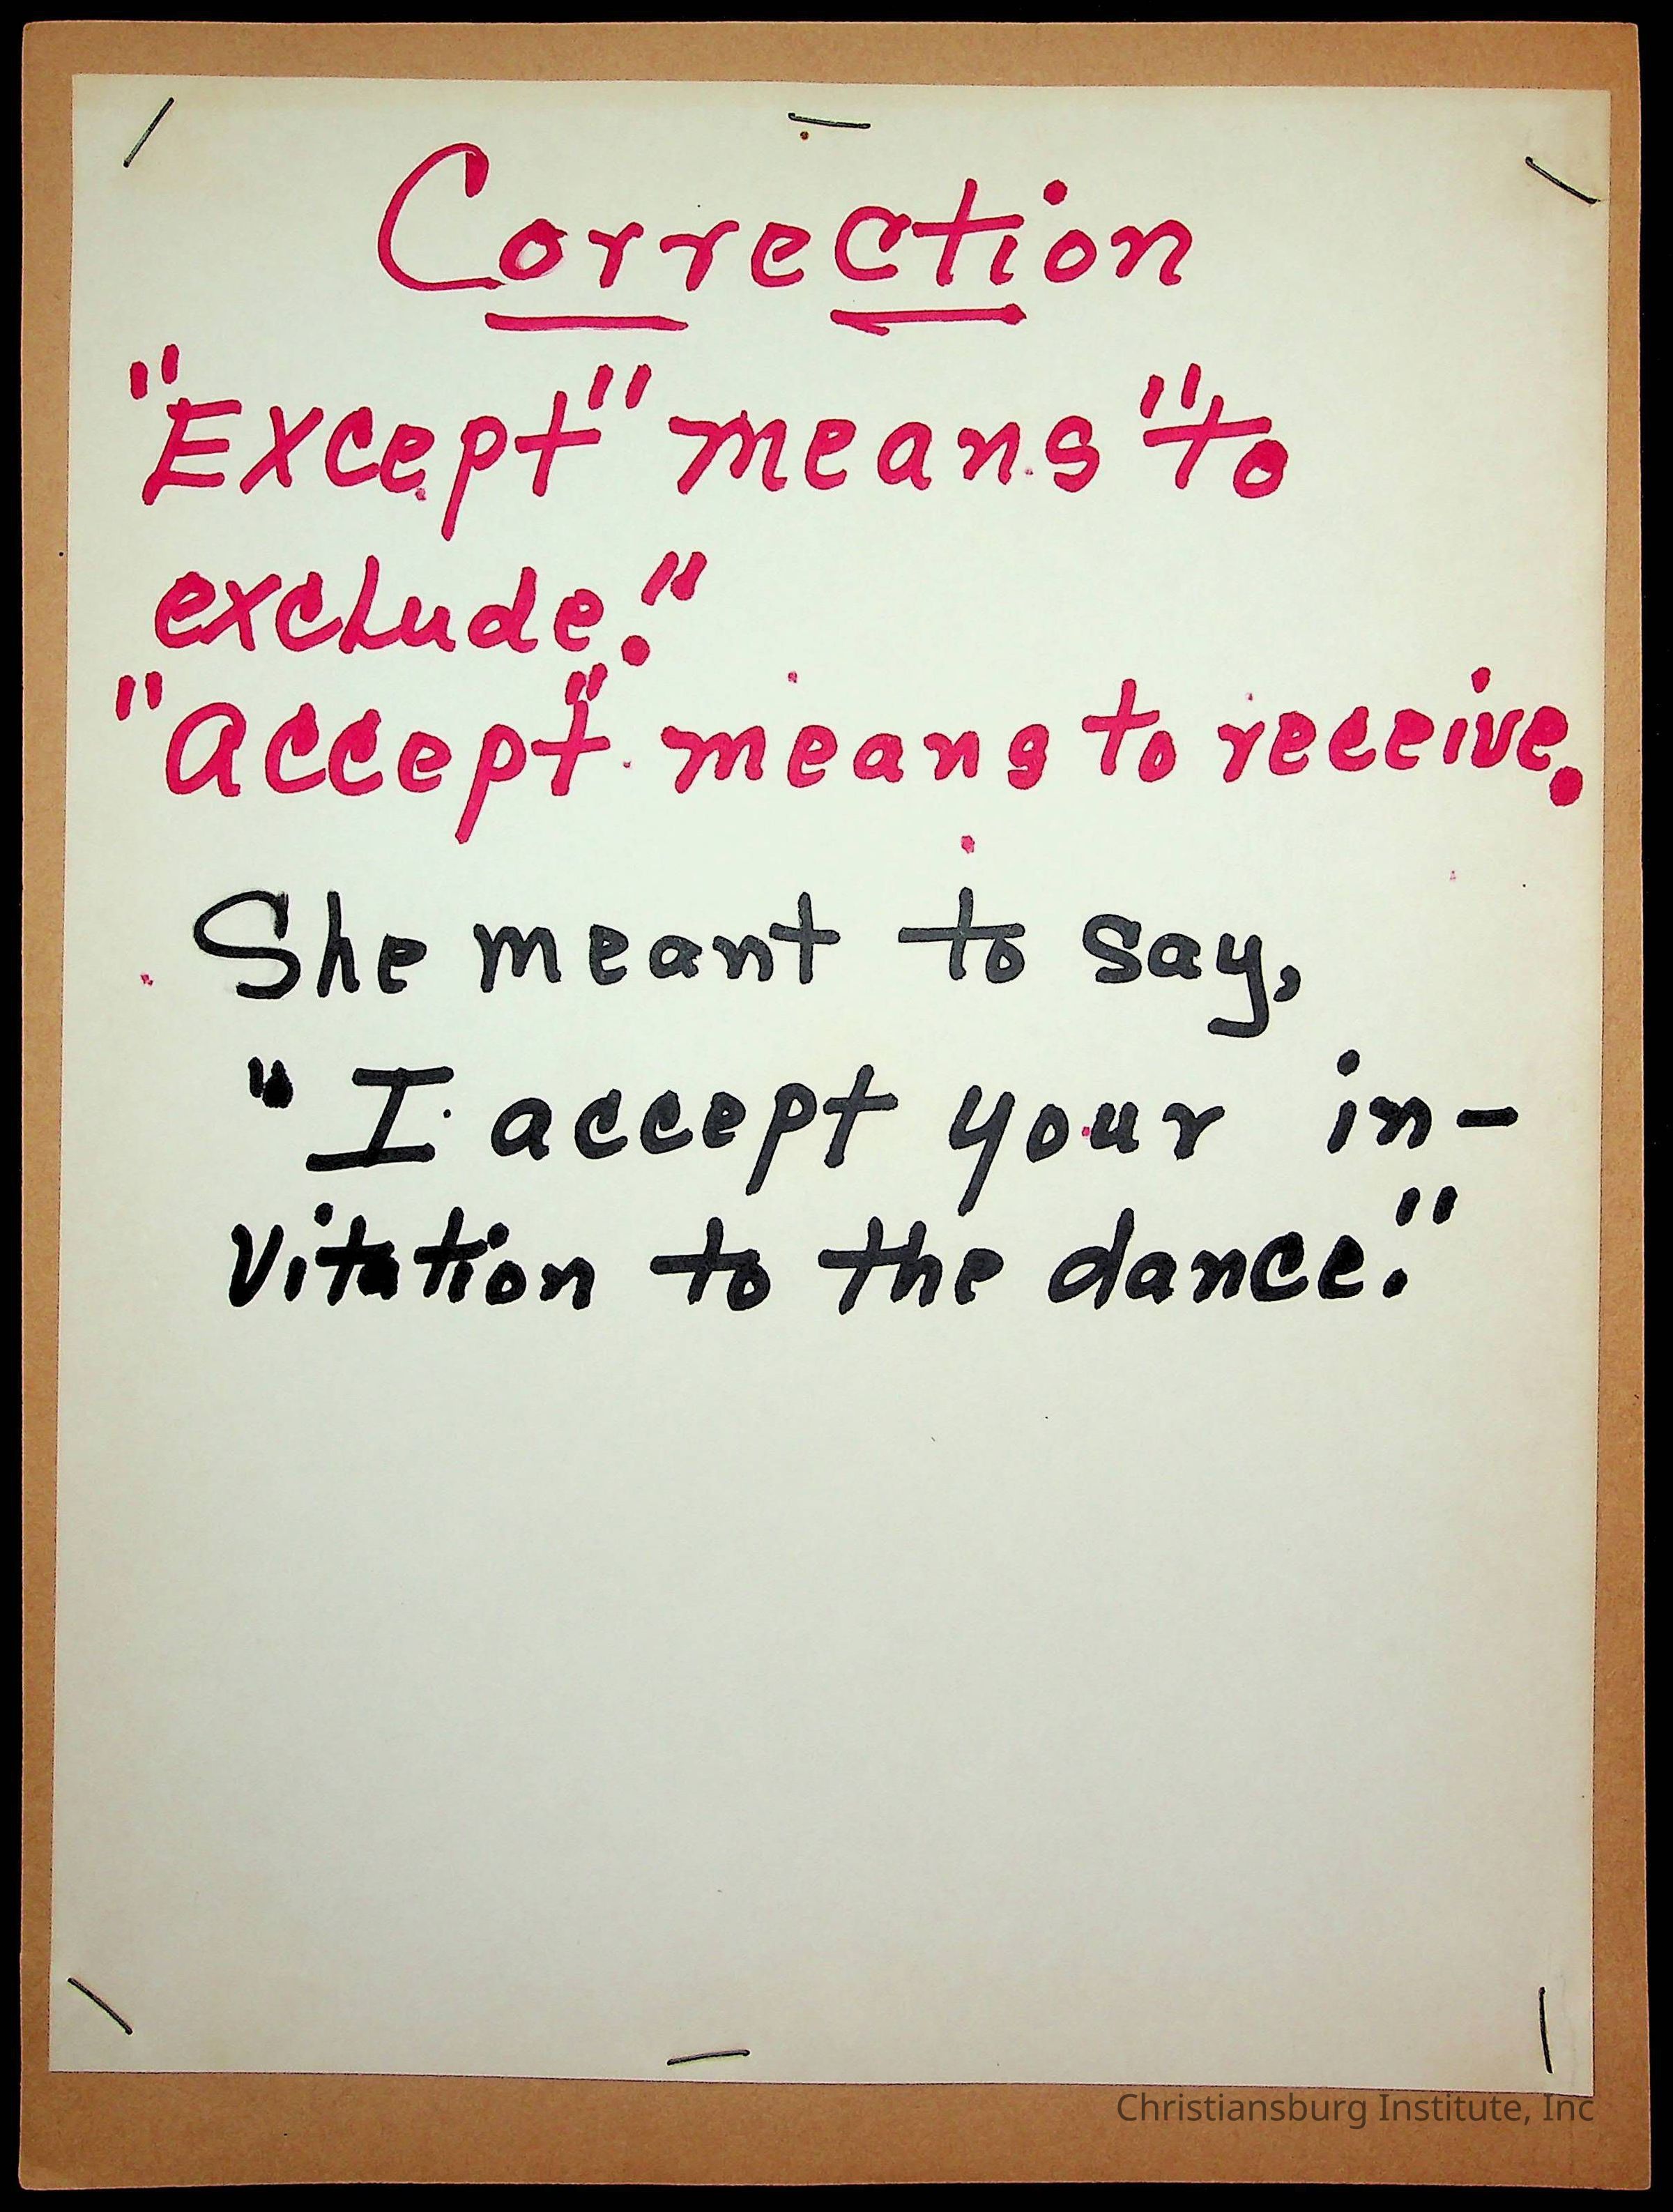 Correction
"Except" means "to
exclude."
"Accept" means to receive.
She meant to say,
"I accept your in-
vitation to the dance."
Christiansburg Institute, Inc